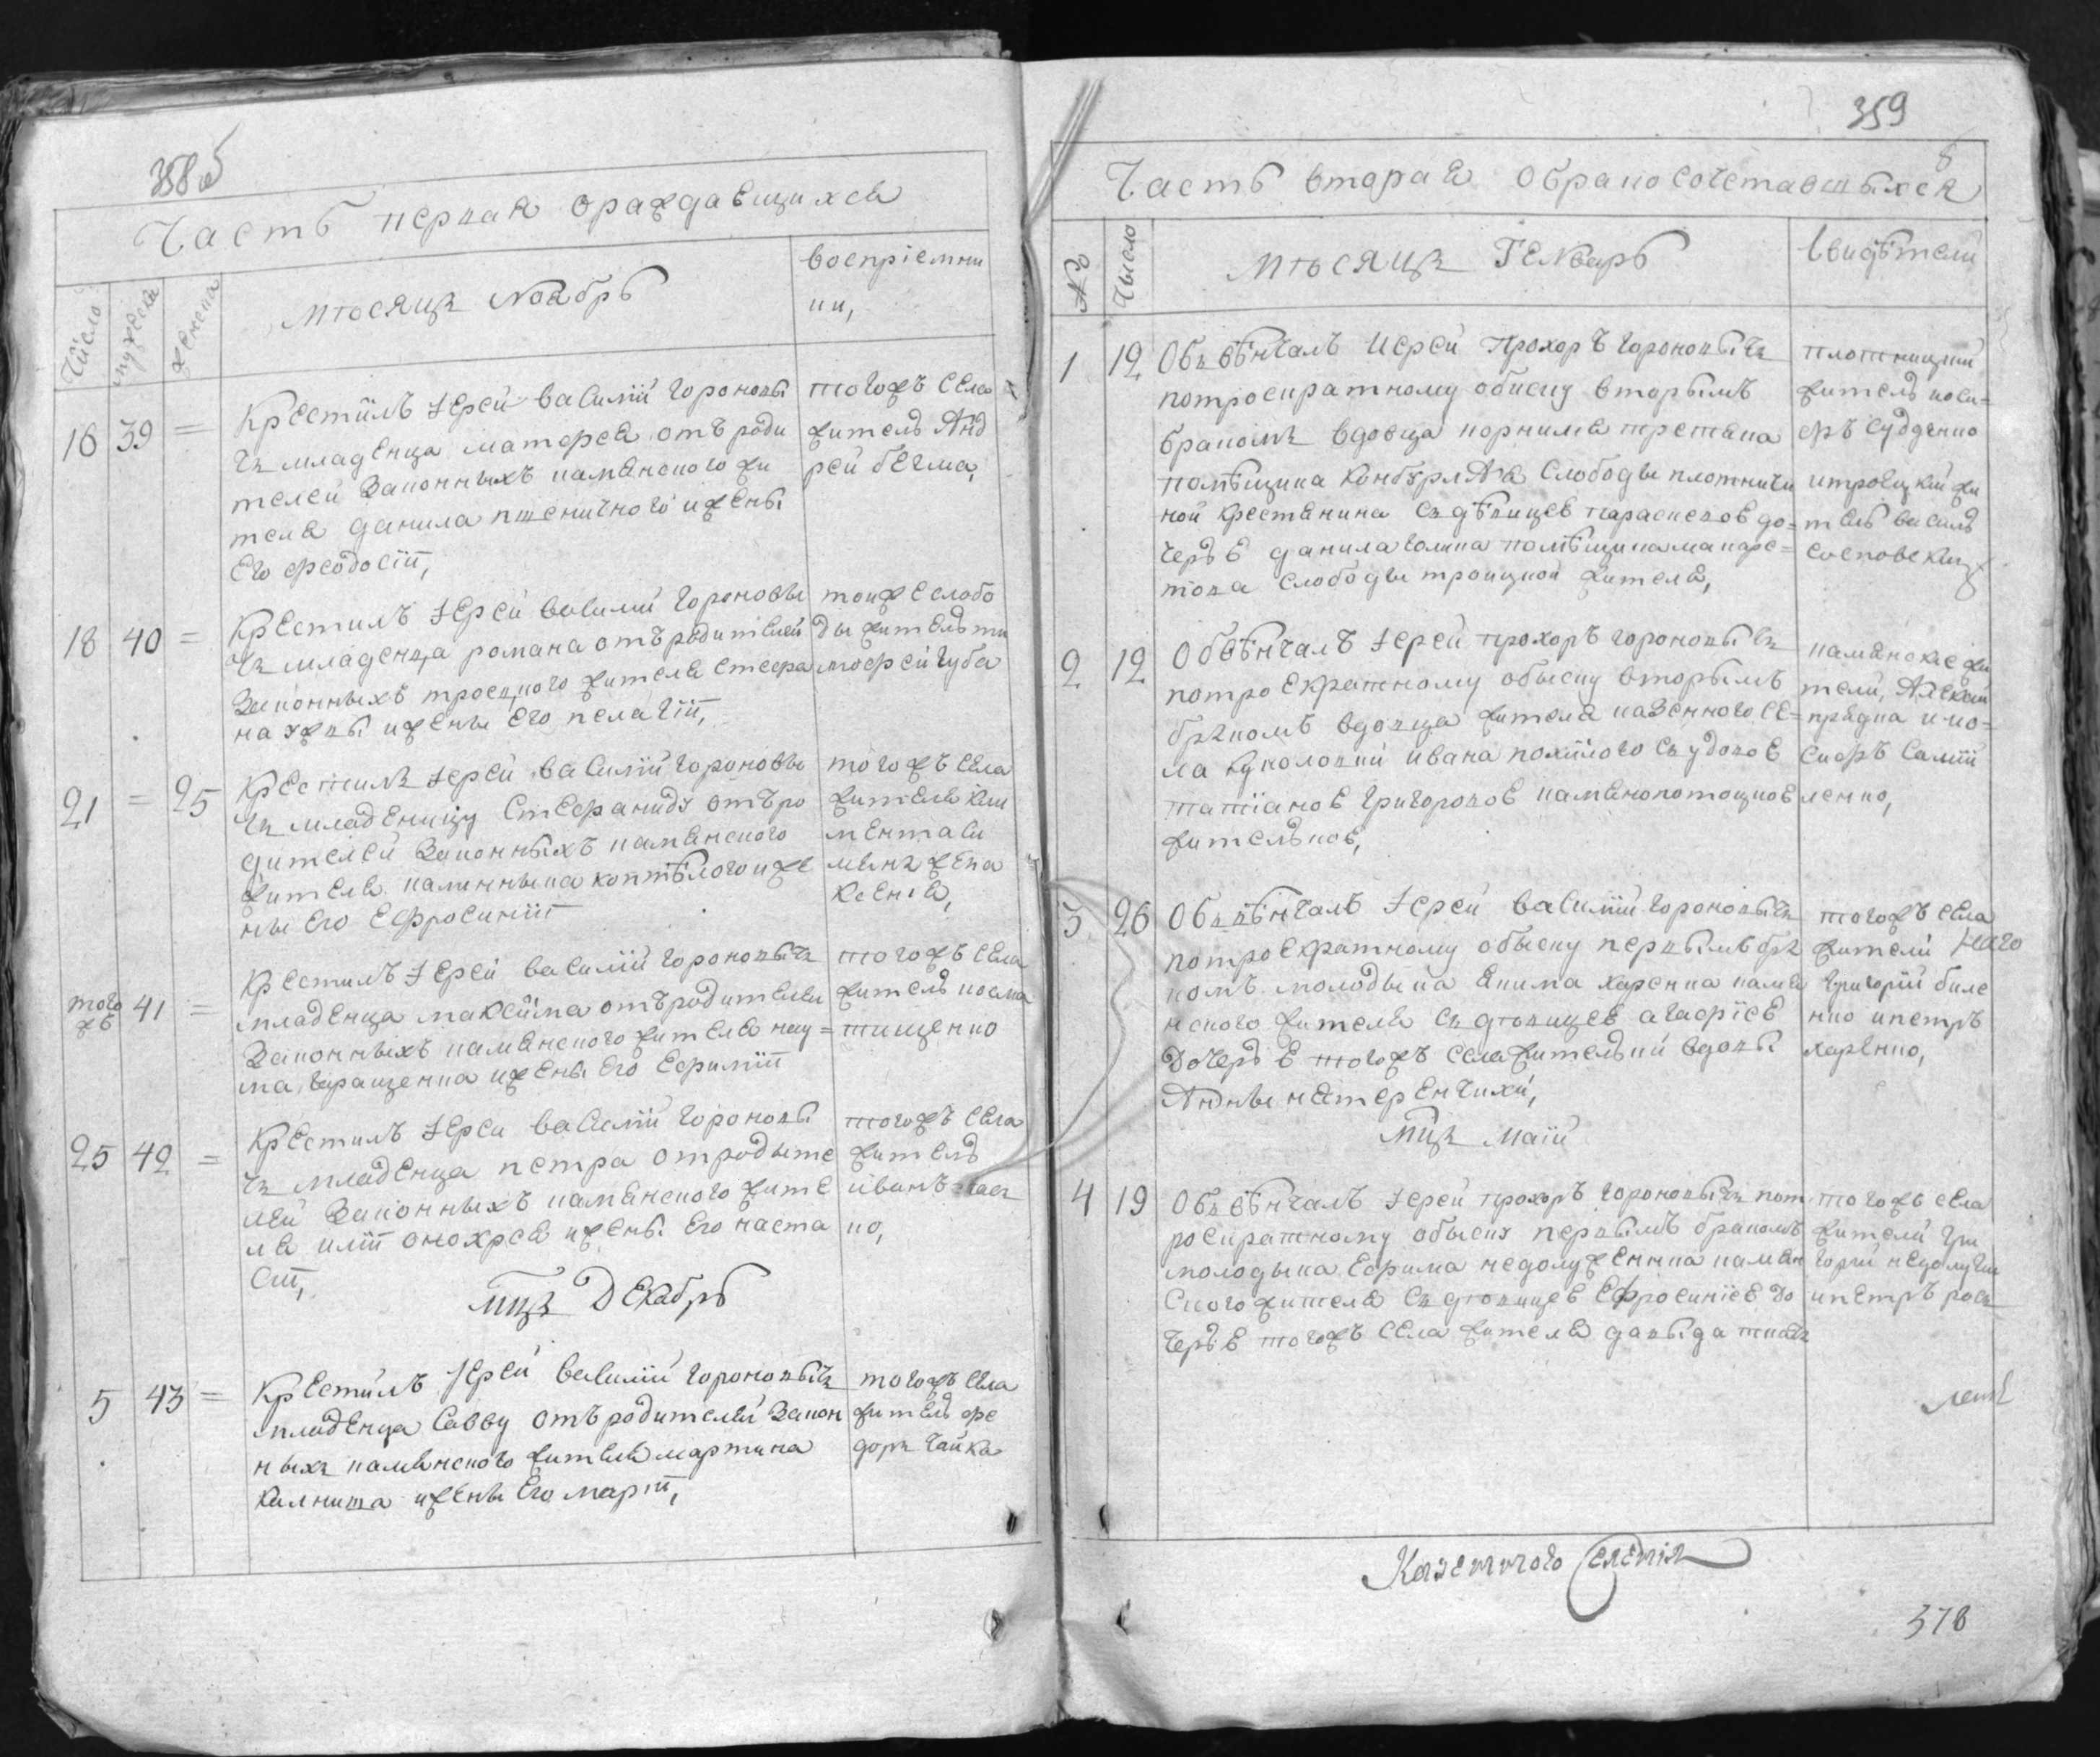 358об
Часть первая ораждаещихся
Число
мужеска
женска
мѣсяцъ Ноябрь
воспріемни
ки,
16 39 =
Крестилъ іерей василій гороновы
чъ младенца матфея отъ роди
телей законныхъ камянского жи
теля данила пшеничного и жены
его феодосіи,
тогожъ села
житель Анд
рей бегма,
18 40 =
Крестилъ іерей василій гороновы
чъ младенца романа отъ родителей
законныхъ троецкого жителя стефа
на жены его пелагіи,
тоиже слобо
ды житель ти
мофей губа
21 = 25
Крестилъ іерей василій гороновы
чъ младеницу Стефаниду отъ ро
дителей законныхъ камянского
жителя калинныка коптѣлого и же
ны его Ефросиніи
тогожъ села
жителя кли
мента
жена
ксенія,
того
жъ
41 =
Крестилъ іерей василій гороновычъ
младенца максима отъ родителей
законныхъ камянского жителя нау=
ма гаращенка и жены его Ефиміи
тогожъ села
житель косма
тищенко
25 42 =
Крестилъ іерей василій гороновы
чъ младенца петра отродыте
лей законныхъ камянского жите
ля иліи онохрея и жены его наста
сіи,
тогожъ села
житель
иванъ
ко,
мцъ Декабрь
5 43 =
Крестилъ іерей василій гороновычъ
младенца Савву отъ родителей закон
ныхъ камянского жителя мартина
калниша и жены его маріи,
тогожъ села
житель фе
доръ чайка
359
8
Часть вторая обракосочетавшыхся
№
Число
мѣсяцъ Генварь
Свидѣтели
1 12
Обвѣнчалъ иерей Прохоръ гороновычъ
потроекратному обиску вторымъ
бракомъ вдовца корнилия третяка
помѣщика Слободы плотничи
ной крестянина съ дѣвицею параскевою до=
черью данила голика помѣщика макаре=
това слободы троицкой жителя,
плотницкий
житель иоси=
фъ Судденко
итроецкий жи
тель василь
Сосновски
2 12
Обвѣнчалъ іерей прохоръ гороновычъ
потроекратному обыску вторымъ
бракомъ вдовца жителя казенного се=
ла куколовки ивана похилого съ удовою
татіаною григоровою камянопотоцкою
жителькою,
камянские жи
тели, Алексий
прядка и ио=
сифъ Самий
ленко,
3 26
Обвѣнчалъ іерей василій гороновычъ
потроекратному обыску первымъ бра
комъ молодыка якима харенка камя
нского жителя съ дѣвицею агафіею
дочерью тогожъ села жительки вдовы
Анны нестеренчихи,
тогожъ села
жители
григорій биле
нко и петръ
харенко,
мцъ маій
4 19
Обвѣнчалъ іерей прохоръ гороновычъ пот
роекратному обыску первымъ бракомъ
молодыка Ефима недолуженнка камян
ского жителя съ дѣвицею Ефросиніею до
черью тогожъ села жителя давыда
тогожъ села
жители гри
горій
и петръ
Казенного Селенія
378